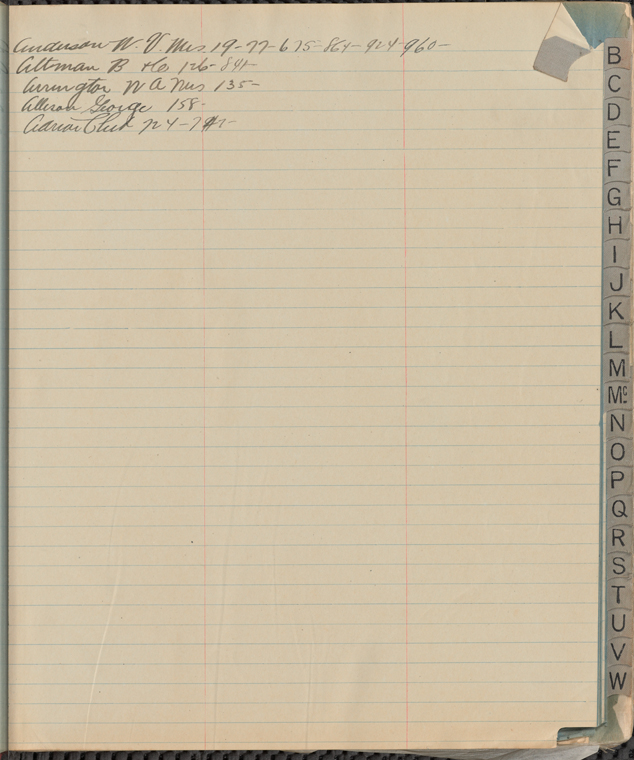 Anderson W. V. Mrs 19-77-675-864-924-960-
Altman B & Co 126-841-
Arrington W A Mrs 135-
Allison George 158-
Adrian 
B
C
D
E
F
G
H
I
J
K
L
M
Mc
N
O
P
Q
R
S
T
U
V
W